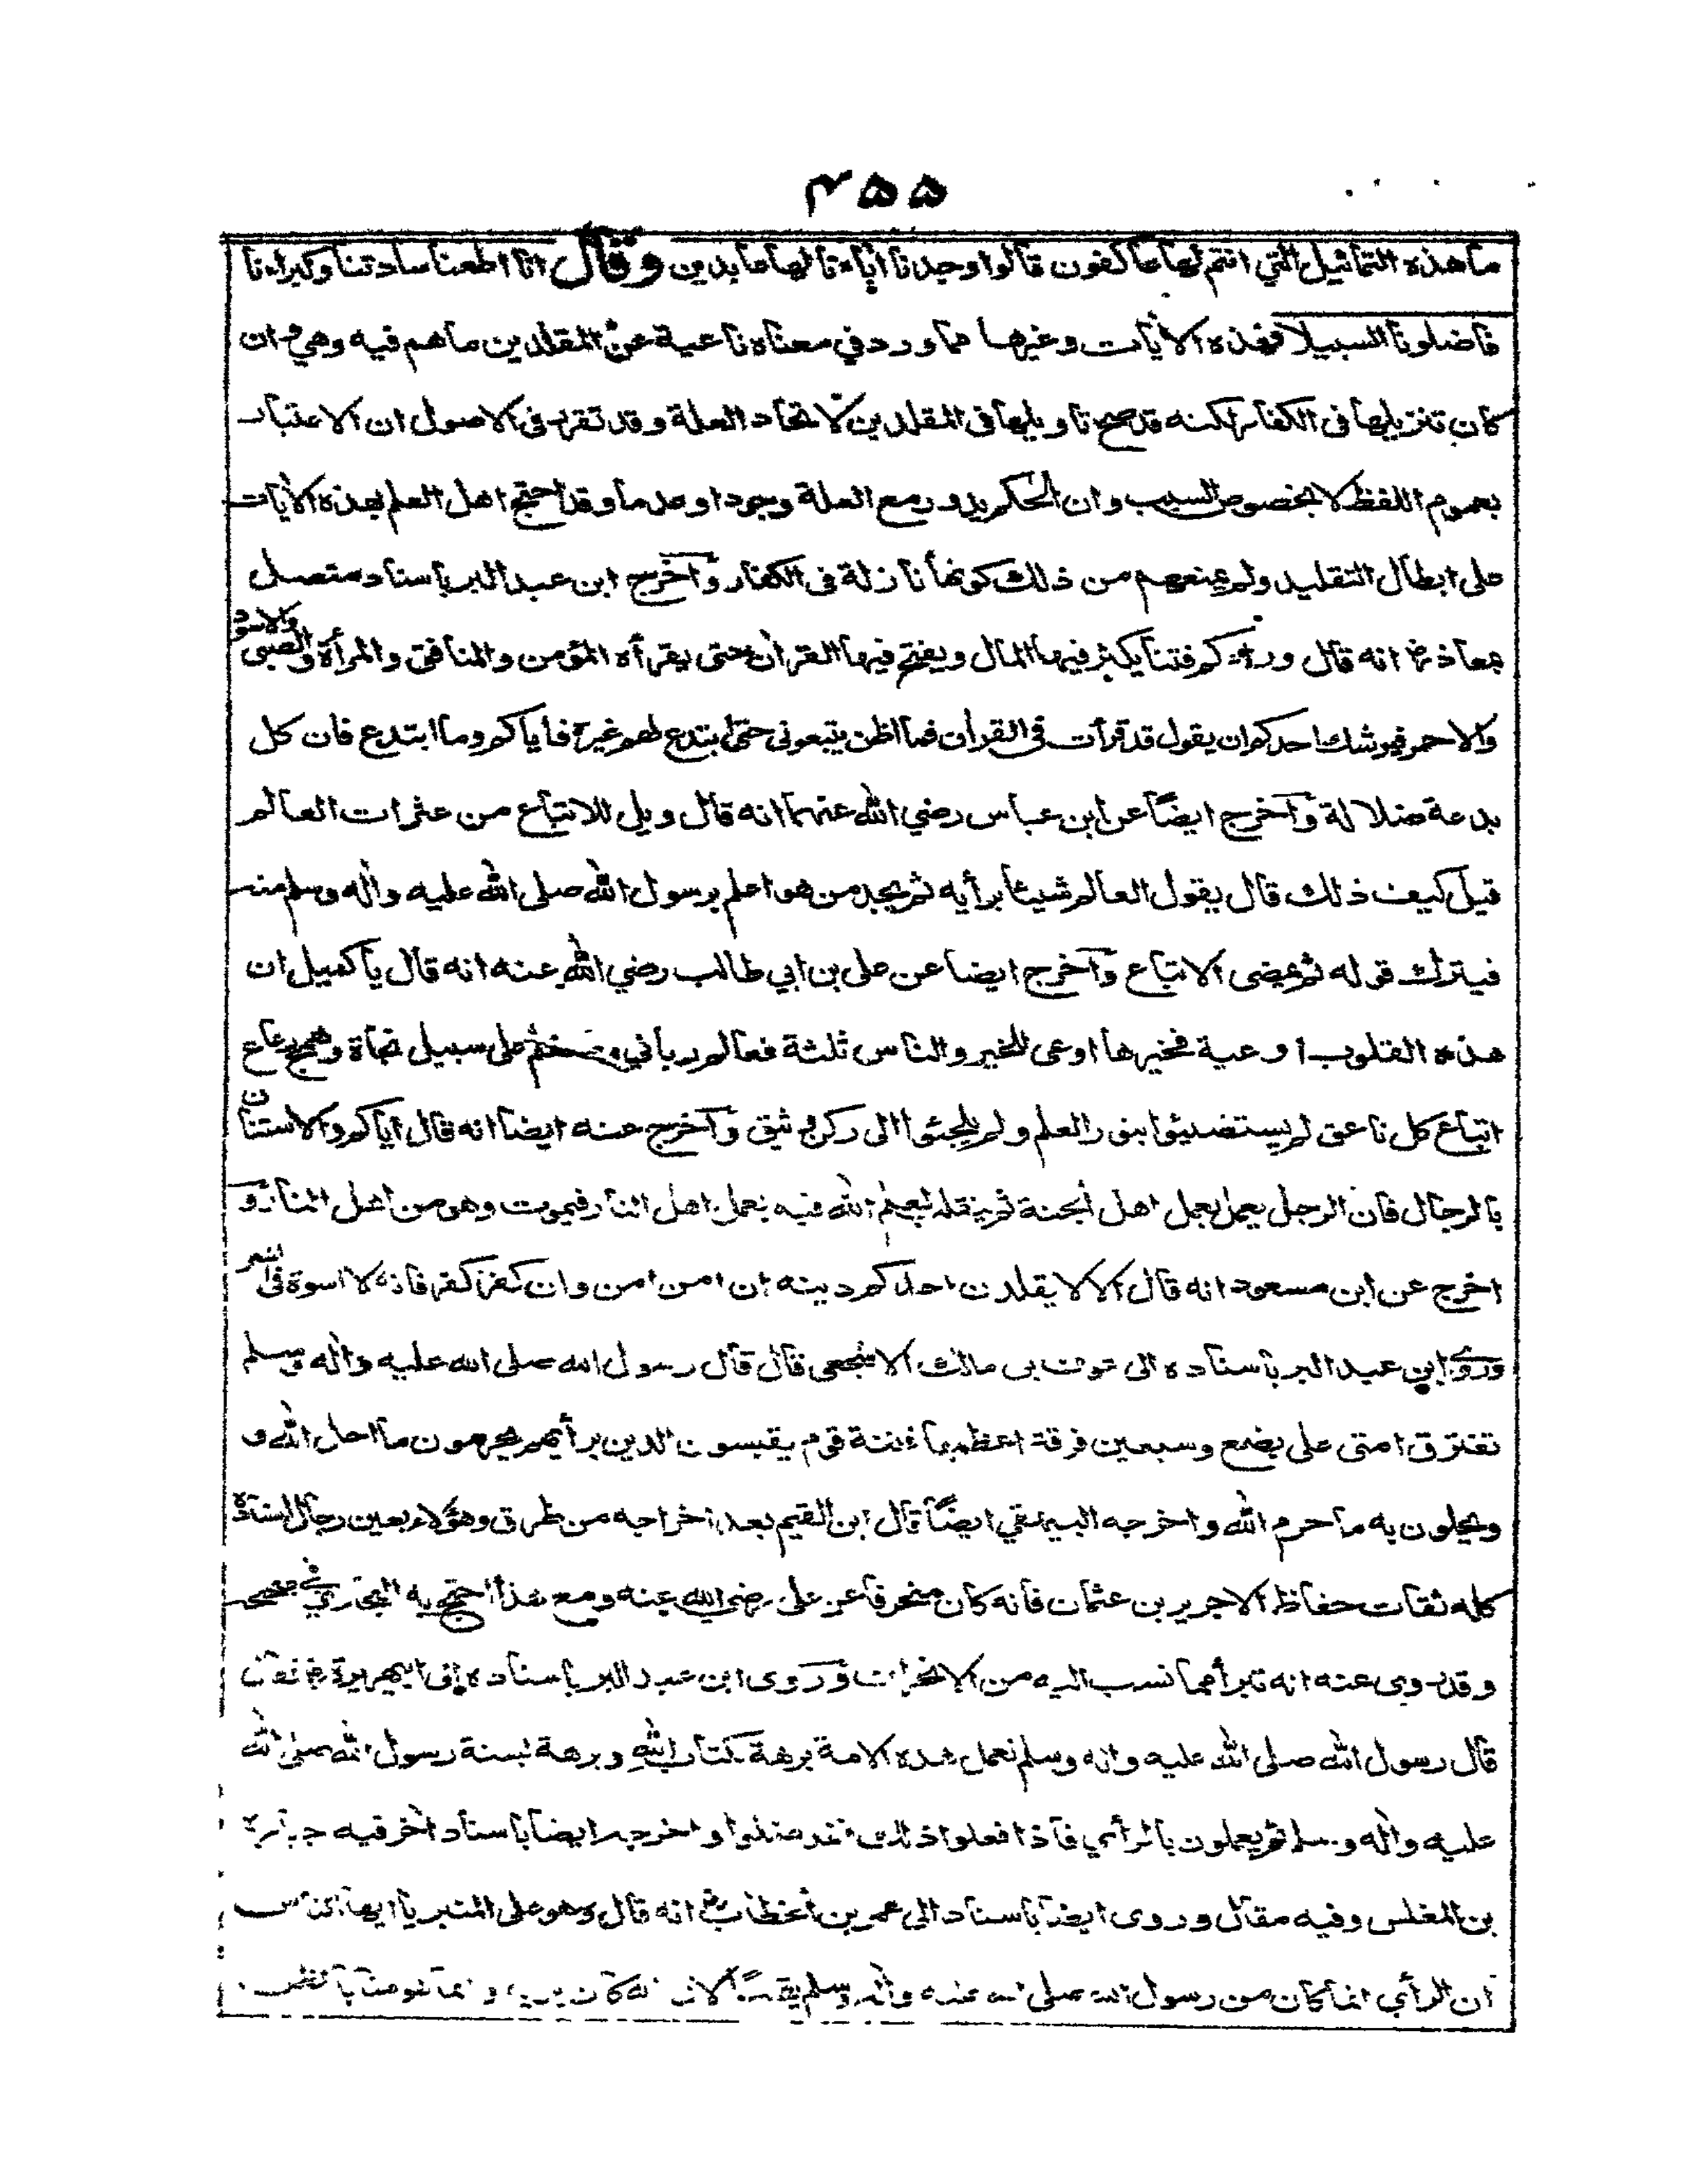 ٤٥٥
ما هذه التماثيل التي انتم لها عاكفون قالوا وجدنا اٰباءنا لها عابدين وقال انا اطعنا سادتنا وكبراءنا
فاضلونا السبيلا فهذه الاٰيات وغيرها مما ورد في معناه ناعية عن المقلدين ما هم فيه وهي ان
كان تنزيلها فى الكفار لكنه قد صح تاويلها فى المقلدين لاتحاد العلة وقد تقرر فى الاصول ان الاعتبار
بعموم اللفظ لا بخصوص السبب وان الحكم يدور مع العلة وجودا وعدما وقد احتج اهل العلم بهذه الاٰيات
على ابطال التقليد ولم يمنعهم من ذلك كونها نازلة فى الكفار واخرج ابن عبد البر باسناد متصل
بمعاذ رض انه قال وراءكم فتنا يكثر فيها المال ويفتح فيها القراٰن حتى يقرأه المؤمن والمنافق والمرأة والصبى والاسود
والاحمر فيوشك احدكم ان يقول قد قرأت فى القراٰن فما اظن يتبعونى حتى ابتدع لهم غيره فاياكم وما ابتدع فان كل
بدعة ضلالة واخرج ايضاً عن ابن عباس رضي الله عنهما انه قال ويل للاتباع من عثرات العالم
قيل كيف ذلك قال يقول العالم شيئا برأيه ثم يجد من هو اعلم برسول الله صلى الله عليه واٰله وسلم منه
فيترك قوله ثم يمضى الاتباع واخرج ايضا عن على بن ابي طالب رضي الله عنه انه قال يا كميل ان
هذه القلوب اوعية فخيرها اوعى للخير والناس ثلثة فعالم رباني ومتعلم على سبيل نجاة وهمج رعاع
اتباع كل ناعق لم يستضيئوا بنور العلم ولم يلجئوا الى ركن وثيق واخرج عنه ايضا انه قال اياكم والاستنان
بالرجال فان الرجل يعمل بعمل اهل الجنة ثم ينقلب لعلم الله فيه بعمل اهل النار فيموت وهو من اهل النار و
اخرج عن ابن مسعود انه قال الا لا يقلدن احدكم دينه ان امن امن وان كفر كفر فانه لا اسوة فى الشر
وروى ابن عبد البر باسناده الى عوف بن مالك الاشجعى قال قال رسول الله صلى الله عليه واٰله وسلم
تفترق امتى على بضع وسبعين فرقة اعظمها فتنة قوم يقيسون الدين برأيهم يحرمون ما احل الله و
ويحلون به ما حرم الله واخرجه البيهقي ايضاً قال ابن القيم بعد اخراجه من طرق وهؤلاء يعنى رجال اسناده
كلهم ثقات حفاظ الا جرير بن عثمان فانه كان منحرفا عن على رضي الله عنه ومع هذا احتج به البخاري في صحيحه
وقد روى عنه انه تبرأ مما نسب اليه من الانحراف وروى ابن عبد البر باسناده الى ابى هريرة رض قال
قال رسول الله صلى الله عليه واٰله وسلم تعمل هذه الامة برهة بكتاب الله وبرهة بسنة رسول الله صلى الله
عليه واٰله وسلم ثم يعملون بالرأي فاذا فعلوا ذلك فقد ضلوا واخرجه ايضا باسناد اٰخر فيه جبارة
بن المغلس وفيه مقال وروى ايضا باسناد الى عمر بن الخطاب رض انه قال وهو على المنبر يا ايها الناس
ان الرأي انما كان من رسول الله صلى الله عليه واٰله وسلم